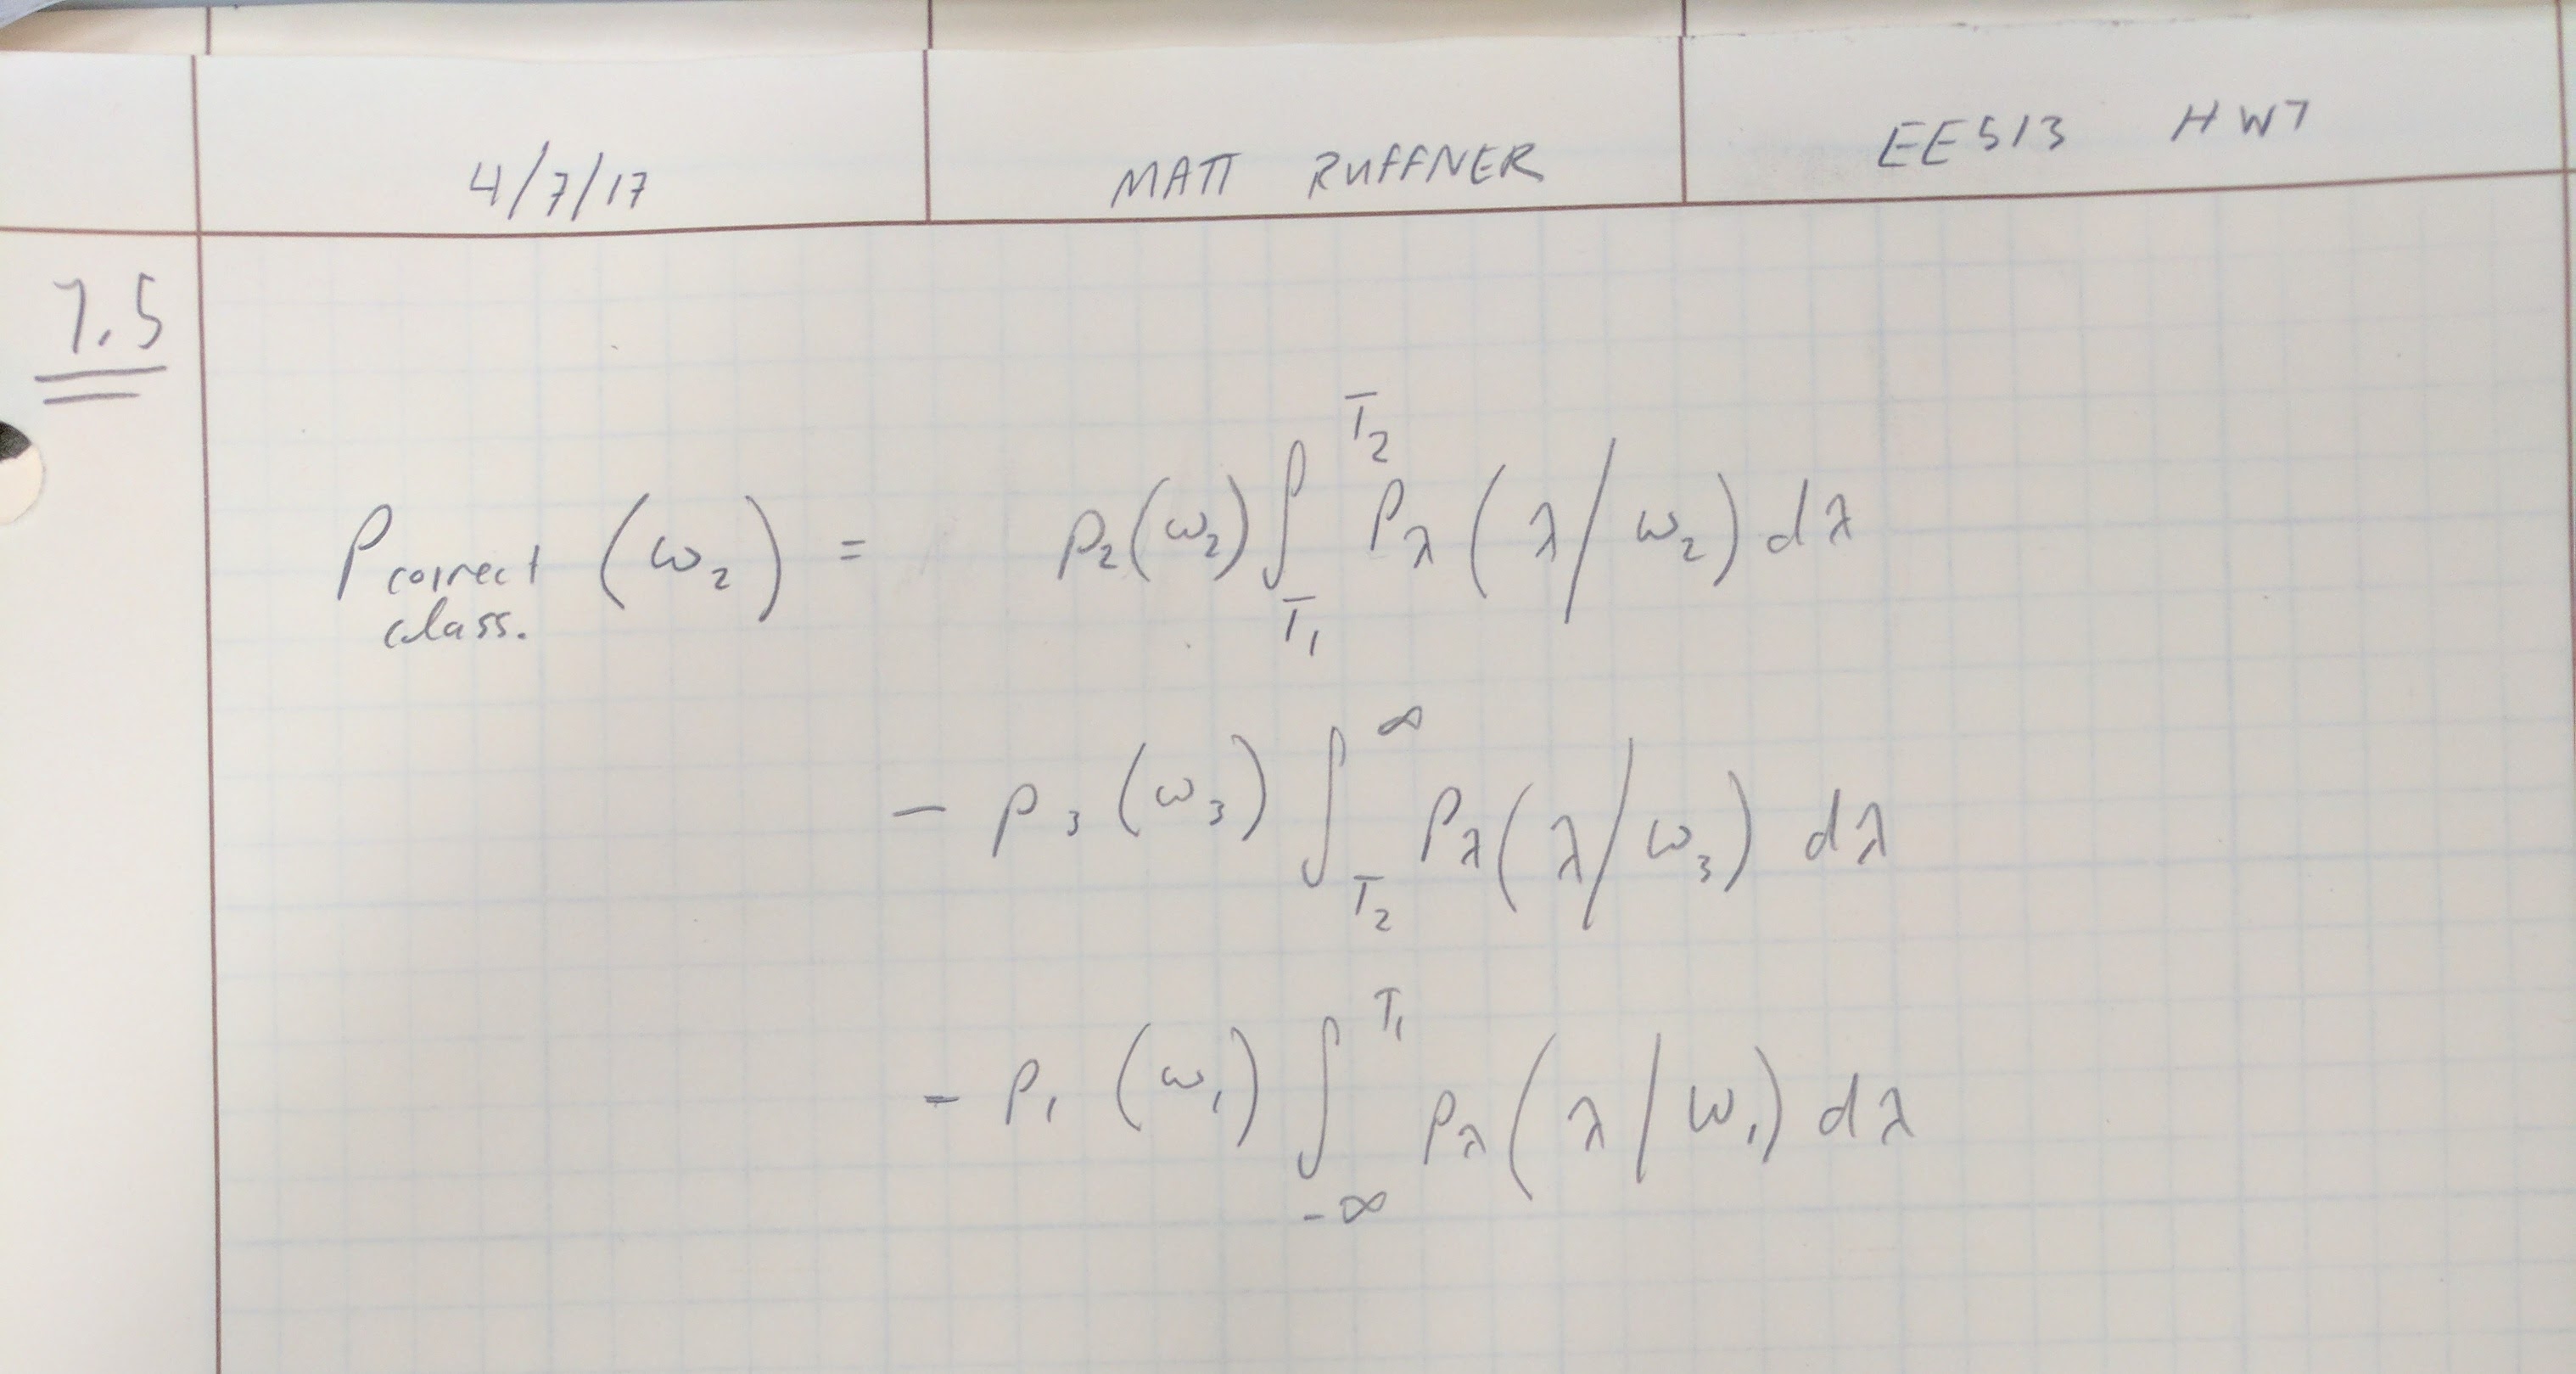 4/7/17 MATT RUFFNER EE513 HW7
7.5
P correct class. (ω₂) = p₂(ω₂) ∫_{T₁}^{T₂} p_λ(λ/ω₂) dλ
- p₃(ω₃) ∫_{T₂}^{∞} p_λ(λ/ω₃) dλ
- p₁(ω₁) ∫_{-∞}^{T₁} p_λ(λ/ω₁) dλ